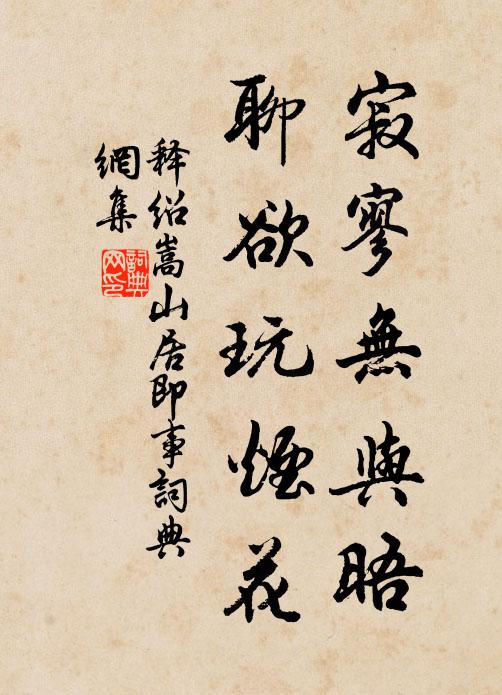 寂寥無與晤
聊欲玩煙花
释绍嵩山居即事詞典
網集
詞典
网印